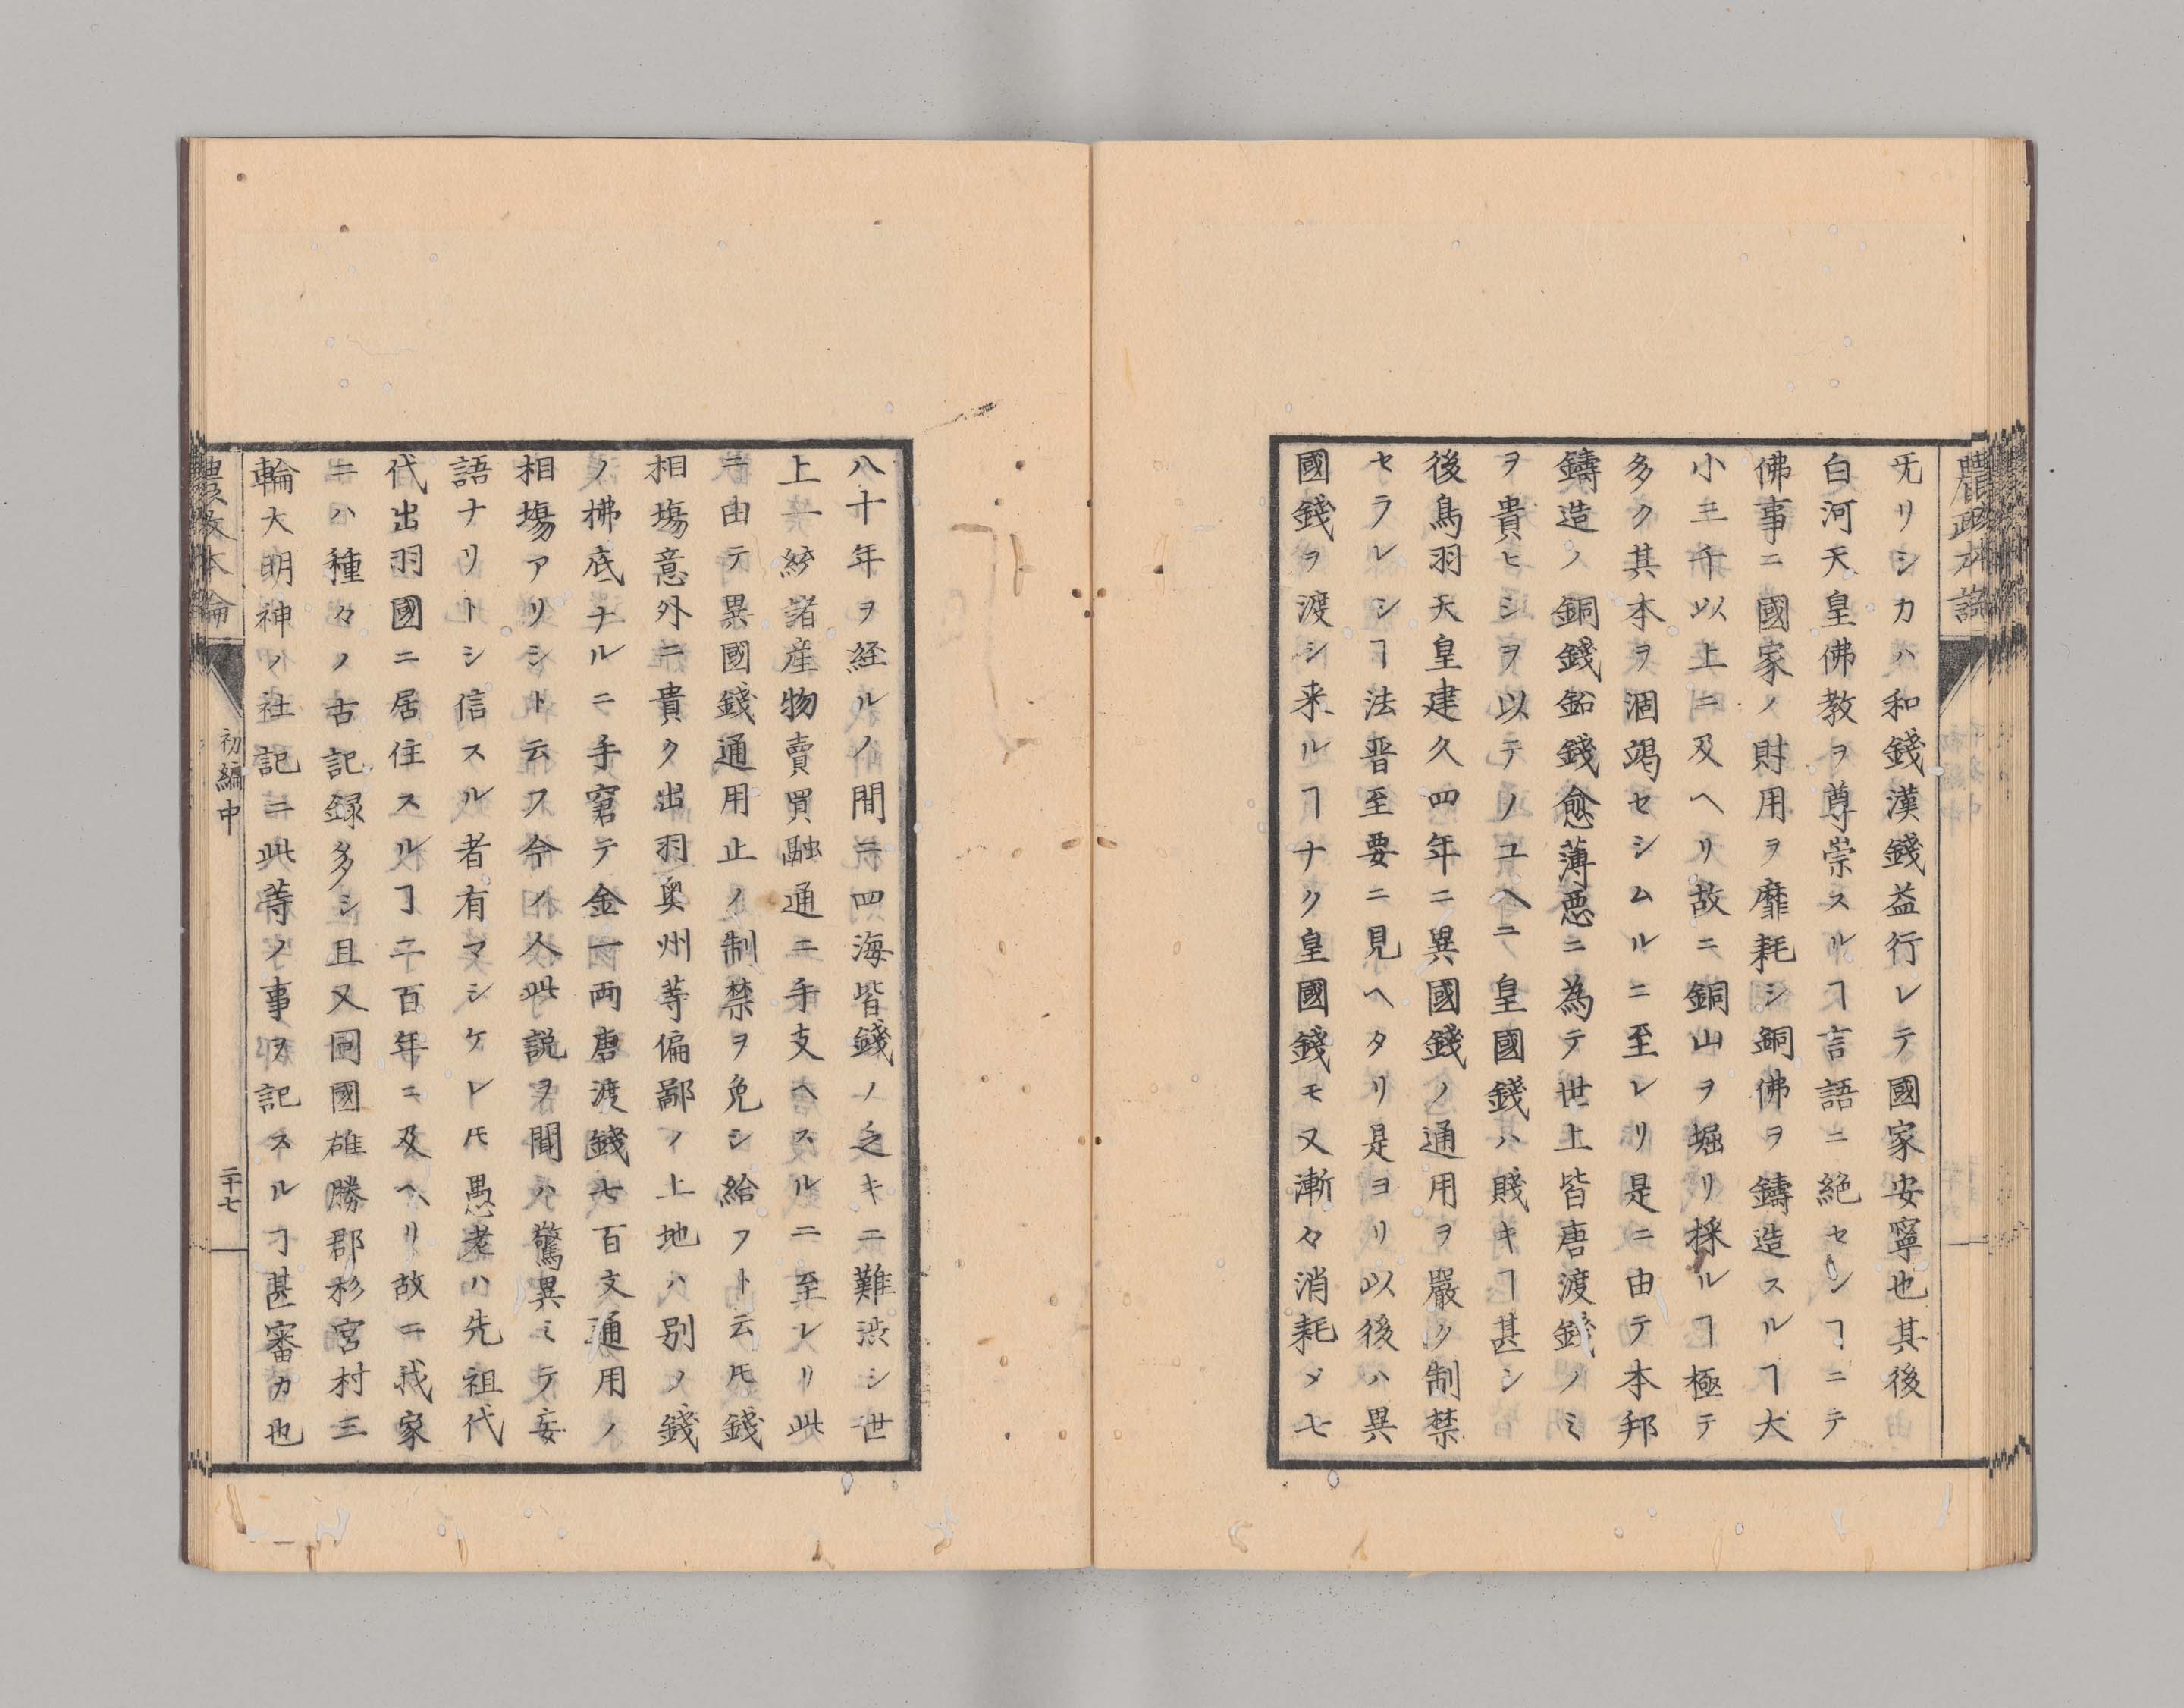 无リシカハ和錢漢錢益行レテ國家安寧也其後
白河天皇佛教ヲ尊崇スルヿ言語ニ絶セシヿニテ
佛事ニ國家ノ財用ヲ靡耗シ銅佛ヲ鑄造スルヿ大
小三千以上ニ及ヘリ故ニ銅山ヲ堀リ採ルヿ極テ
多ク其本ヲ涸竭セシムルニ至レリ是ニ由テ本邦
鑄造ノ銅錢鉛錢愈薄惡ニ為テ世上皆唐渡錢ノミ
ヲ貴ヒシヲ以テノユヘニ皇國錢ハ賤キヿ甚シ
後鳥羽天皇建久四年ニ異國錢ノ通用ヲ嚴ク制禁
セラレシヿ法晋至要ニ見ヘタリ是ヨリ以後ハ異
國錢ヲ渡シ来ルヿナク皇國錢モ又漸々消耗メ七
八十年ヲ経ルノ間ニ四海皆錢ノ乏キニ難渋シ世
上一統諸産物賣買融通ニ手支ヘスルニ至レリ此
ニ由テ異國錢通用止ノ制禁ヲ免シ給フト云𪜈錢
相塲意外ニ貴ク出羽奥州等偏鄙ノ土地ハ別ノ錢
ノ拂底ナルニ手窘テ金一両唐渡錢七百文通用ノ
相塲アリシト云フ今ノ人此説ヲ聞ハ驚異ミテ妄
語ナリトシ信スル者有マシケレ𪜈愚老ハ先祖代
代出羽國ニ居住スルヿ二百年ニ及ヘリ故ニ我家
ニハ種々ノ古記録多シ且又同國雄勝郡杉宮村三
輪大明神ノ社記ニ此等ノ事ヲ記スルヿ甚審カ也
農政本論
初編中
二十七